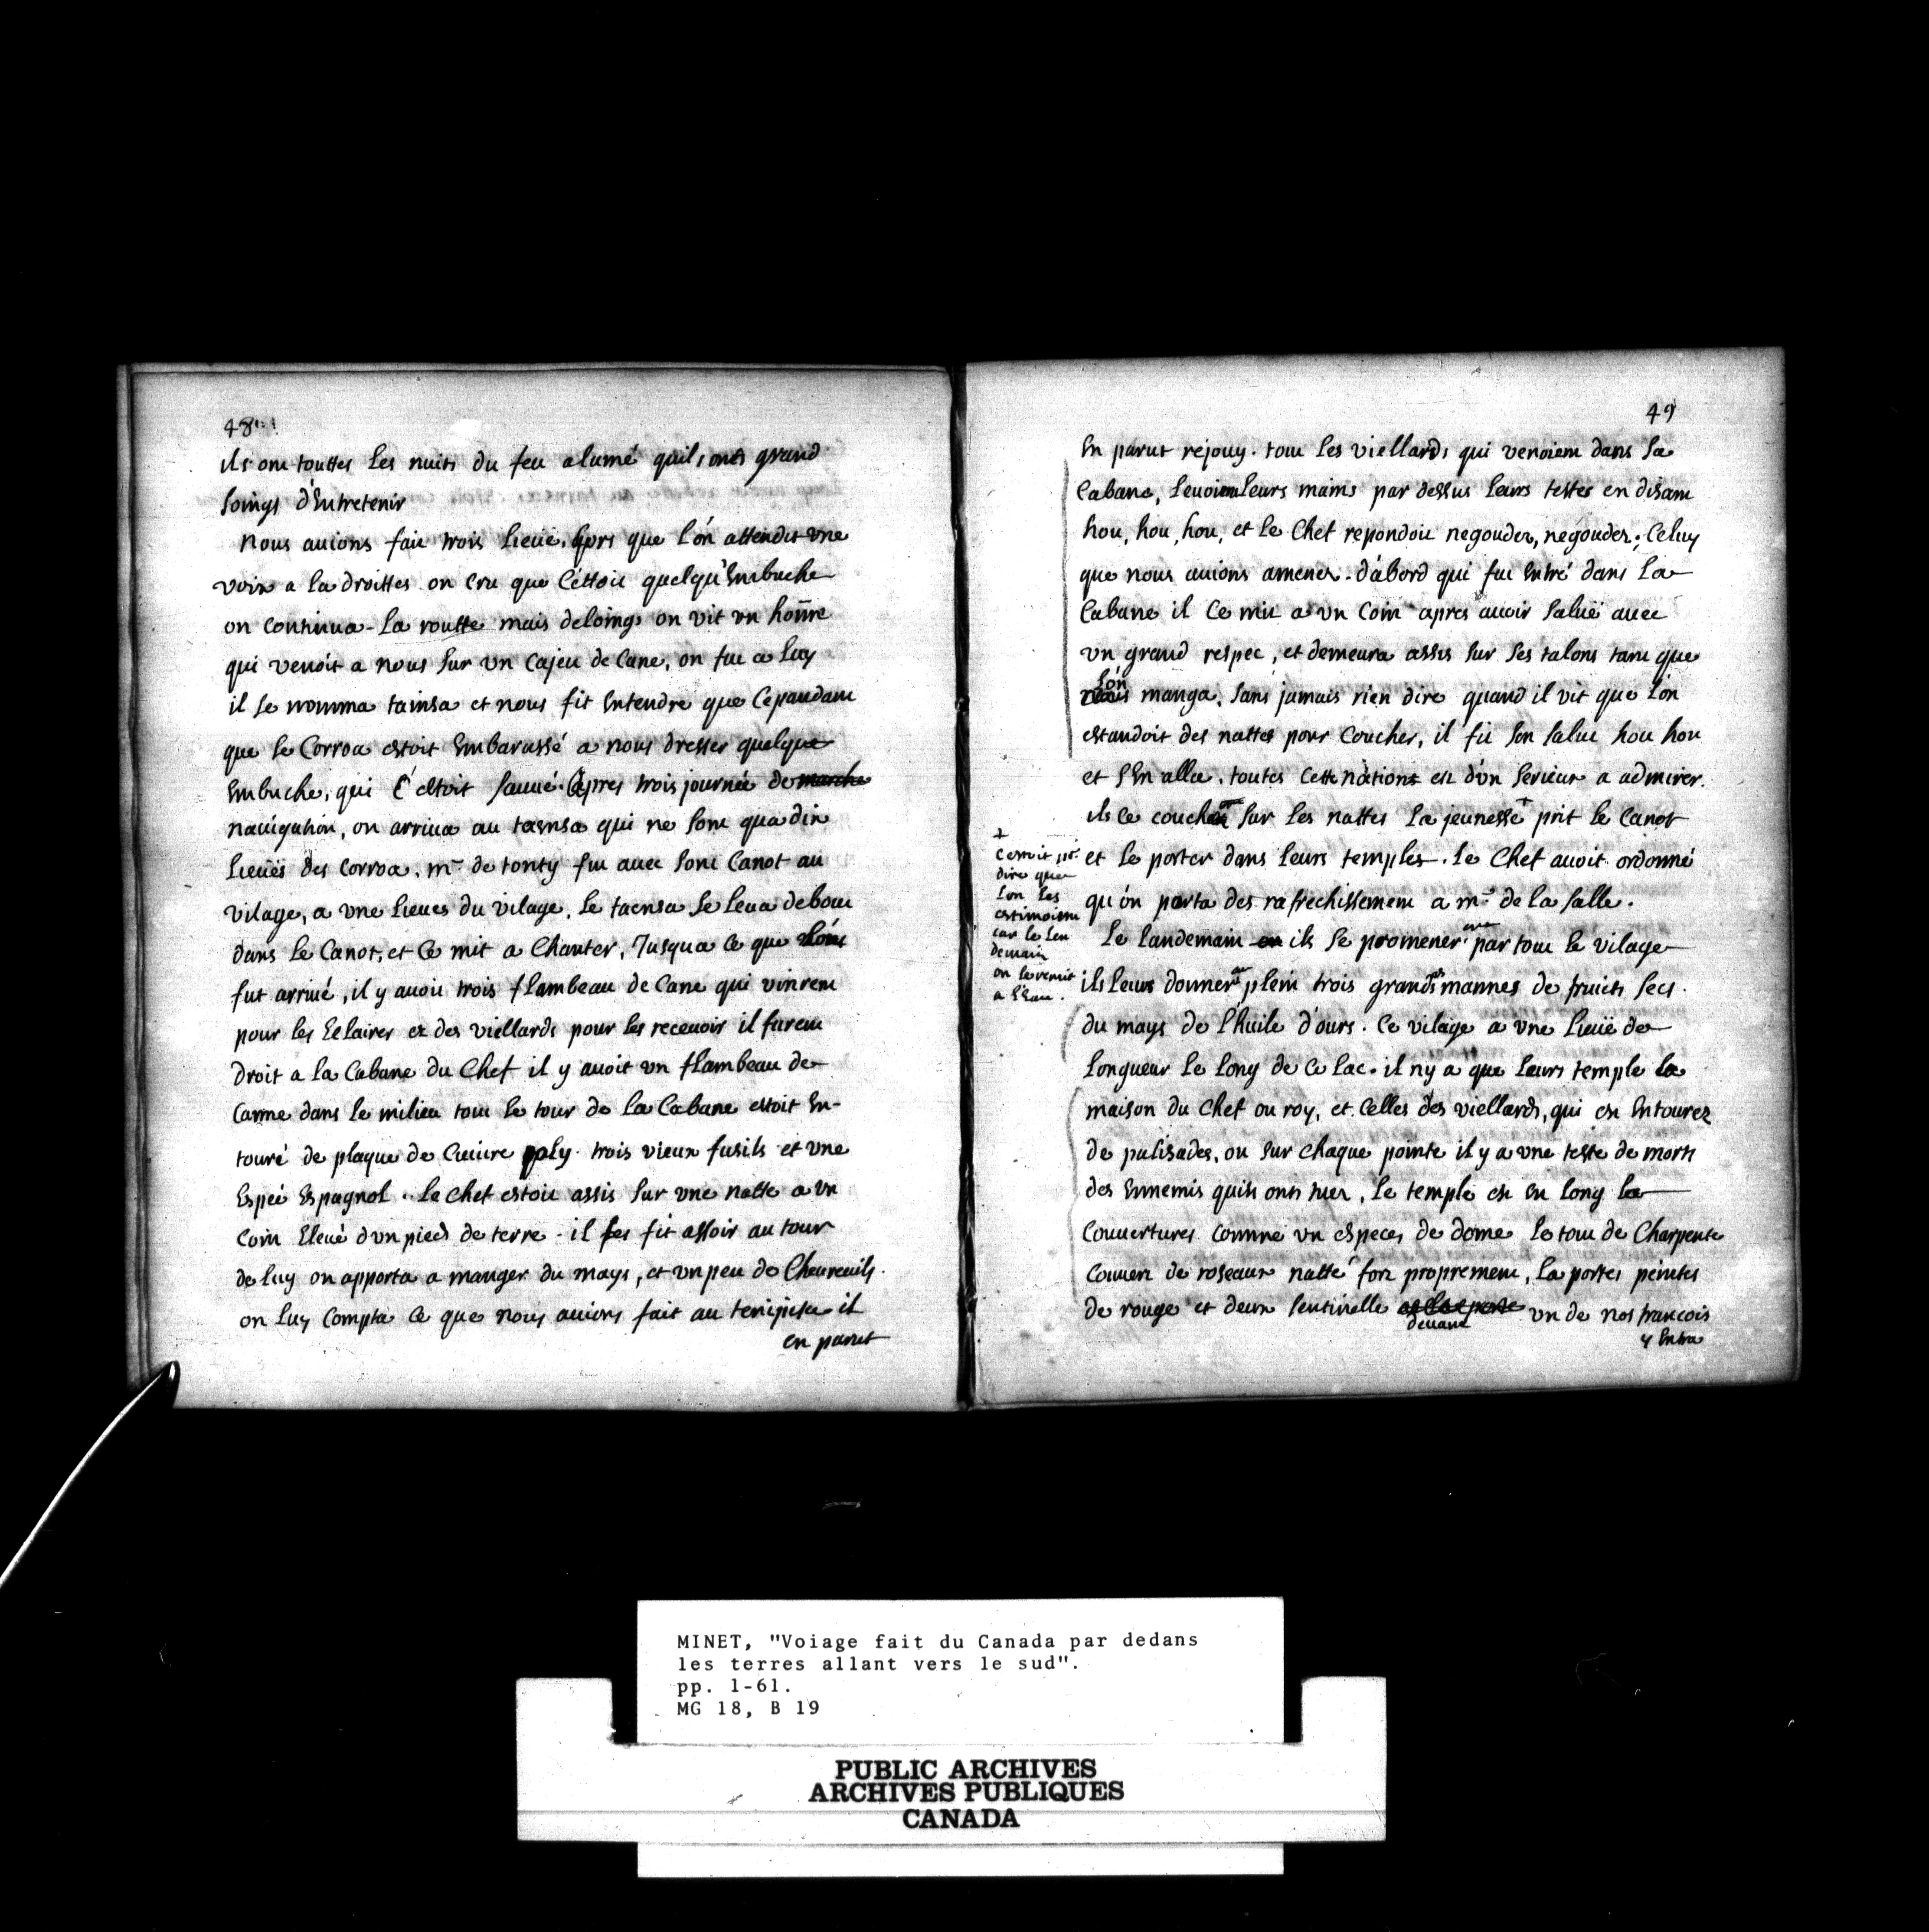 48
ils ont touttes les nuits du feu alumé quils onts grand
soings d'Entretenir
Nous auions fait trois lieüe. lors que l'ón attendit vne
voix a la droittes on cru que C'éttoit quelqu'Embuche
on continua la routte mais deloings on vit vn hom̄e
qui venóit a nous sur vn Cajeu de Cane, on fut a luy
il se nomma tainsa et nous fit Entendre que Cepandant
que le Corroa estoit Embarassé a nous dresser quelque
Embuche, qui s'éstoit sauué. apres trois journée de marche
nauigation, on arriua au taensa qui ne sont qua dix
lieüës des Corroa. mr de tonty fut auec sont Canot au
vilage, a vne lieues du vilage. le taensa se leua debout
dans le Canot, et Ce mit a Chanter, Jusqua ce que l'ón
fut arriué, il y auoit trois flambeau de Cane qui vinrent
pour les Eclairer et des viellards pour les receuoir il furent
droit a la Cabane du Chef il y auoit vn flambeau de
Canne dans le milieu tout le tour de la Cabane estoit En-
touré de plaque de Cuiure poly. trois vieux fusils et vne
Espeé Espagnol. le Chef estoit assis sur vne natte a vn
Coin Eleué d'vn pied de terre. il les fit assoir au tour
de luy on apporta a manger du mays, et vn peu de Cheureuils.
on luy Compta ce que nous auions fait au tenipisa il
en parut
49
En parut rejouy. tout les viellards qui venoient dans la
Cabane, leuoient leurs mains par dessus leurs testes en disant
hou, hou, hou, et le Chef repondoit negouder, negouder; Celuy
que nous auions amener. d'abord qui fut Entré dans la
Cabane il Ce mit a vn Coin apres auoir saluë auec
vn grand respec, et demeura assis sur ses talons tant que
l'ón
nous manga, sans jamais rien dire quand il vit que l'ón
estandoit des nattes pour Coucher, il fit son salut hou hou
et s'En alla. toutes Cette nations est d'vn serieux a admirer.
ils Ce coucher sur les nattes la jeunesse + prit le Canot
et le porter dans leurs temples. le Chef auoit ordonné
qu'ón porta des rafrechissement a mr de la salle.
+
Cestoit
dire que
l'on les
estimoient
car le len
demain
on le remit
a l'Eau.
le landemain on ils se promener par tout le vilage
ils leurs donner plein trois grandes mannes de fruicts secs.
du mays de l'huile d'ours. Ce vilage a vne lieuë de
longueur le long de Ce lac. il n'y a que leurs temple la
maison du Chef ou roy, et Celles des viellards, qui est Entourez
de palisades, ou sur Chaque pointe il y a vne teste de morts
des Ennemis quils onts tuer. le temple est en long la
Couuertures comme vn especes de dome le tout de Charpente
Couuert de roseaux natté fort proprement, la portes peintes
de rouge et deux sentinelle vn de nos francois
deuant
y Entra
MINET, "Voiage fait du Canada par dedans
les terres allant vers le sud".
pp. 1-61.
MG 18, B 19
PUBLIC ARCHIVES
ARCHIVES PUBLIQUES
CANADA